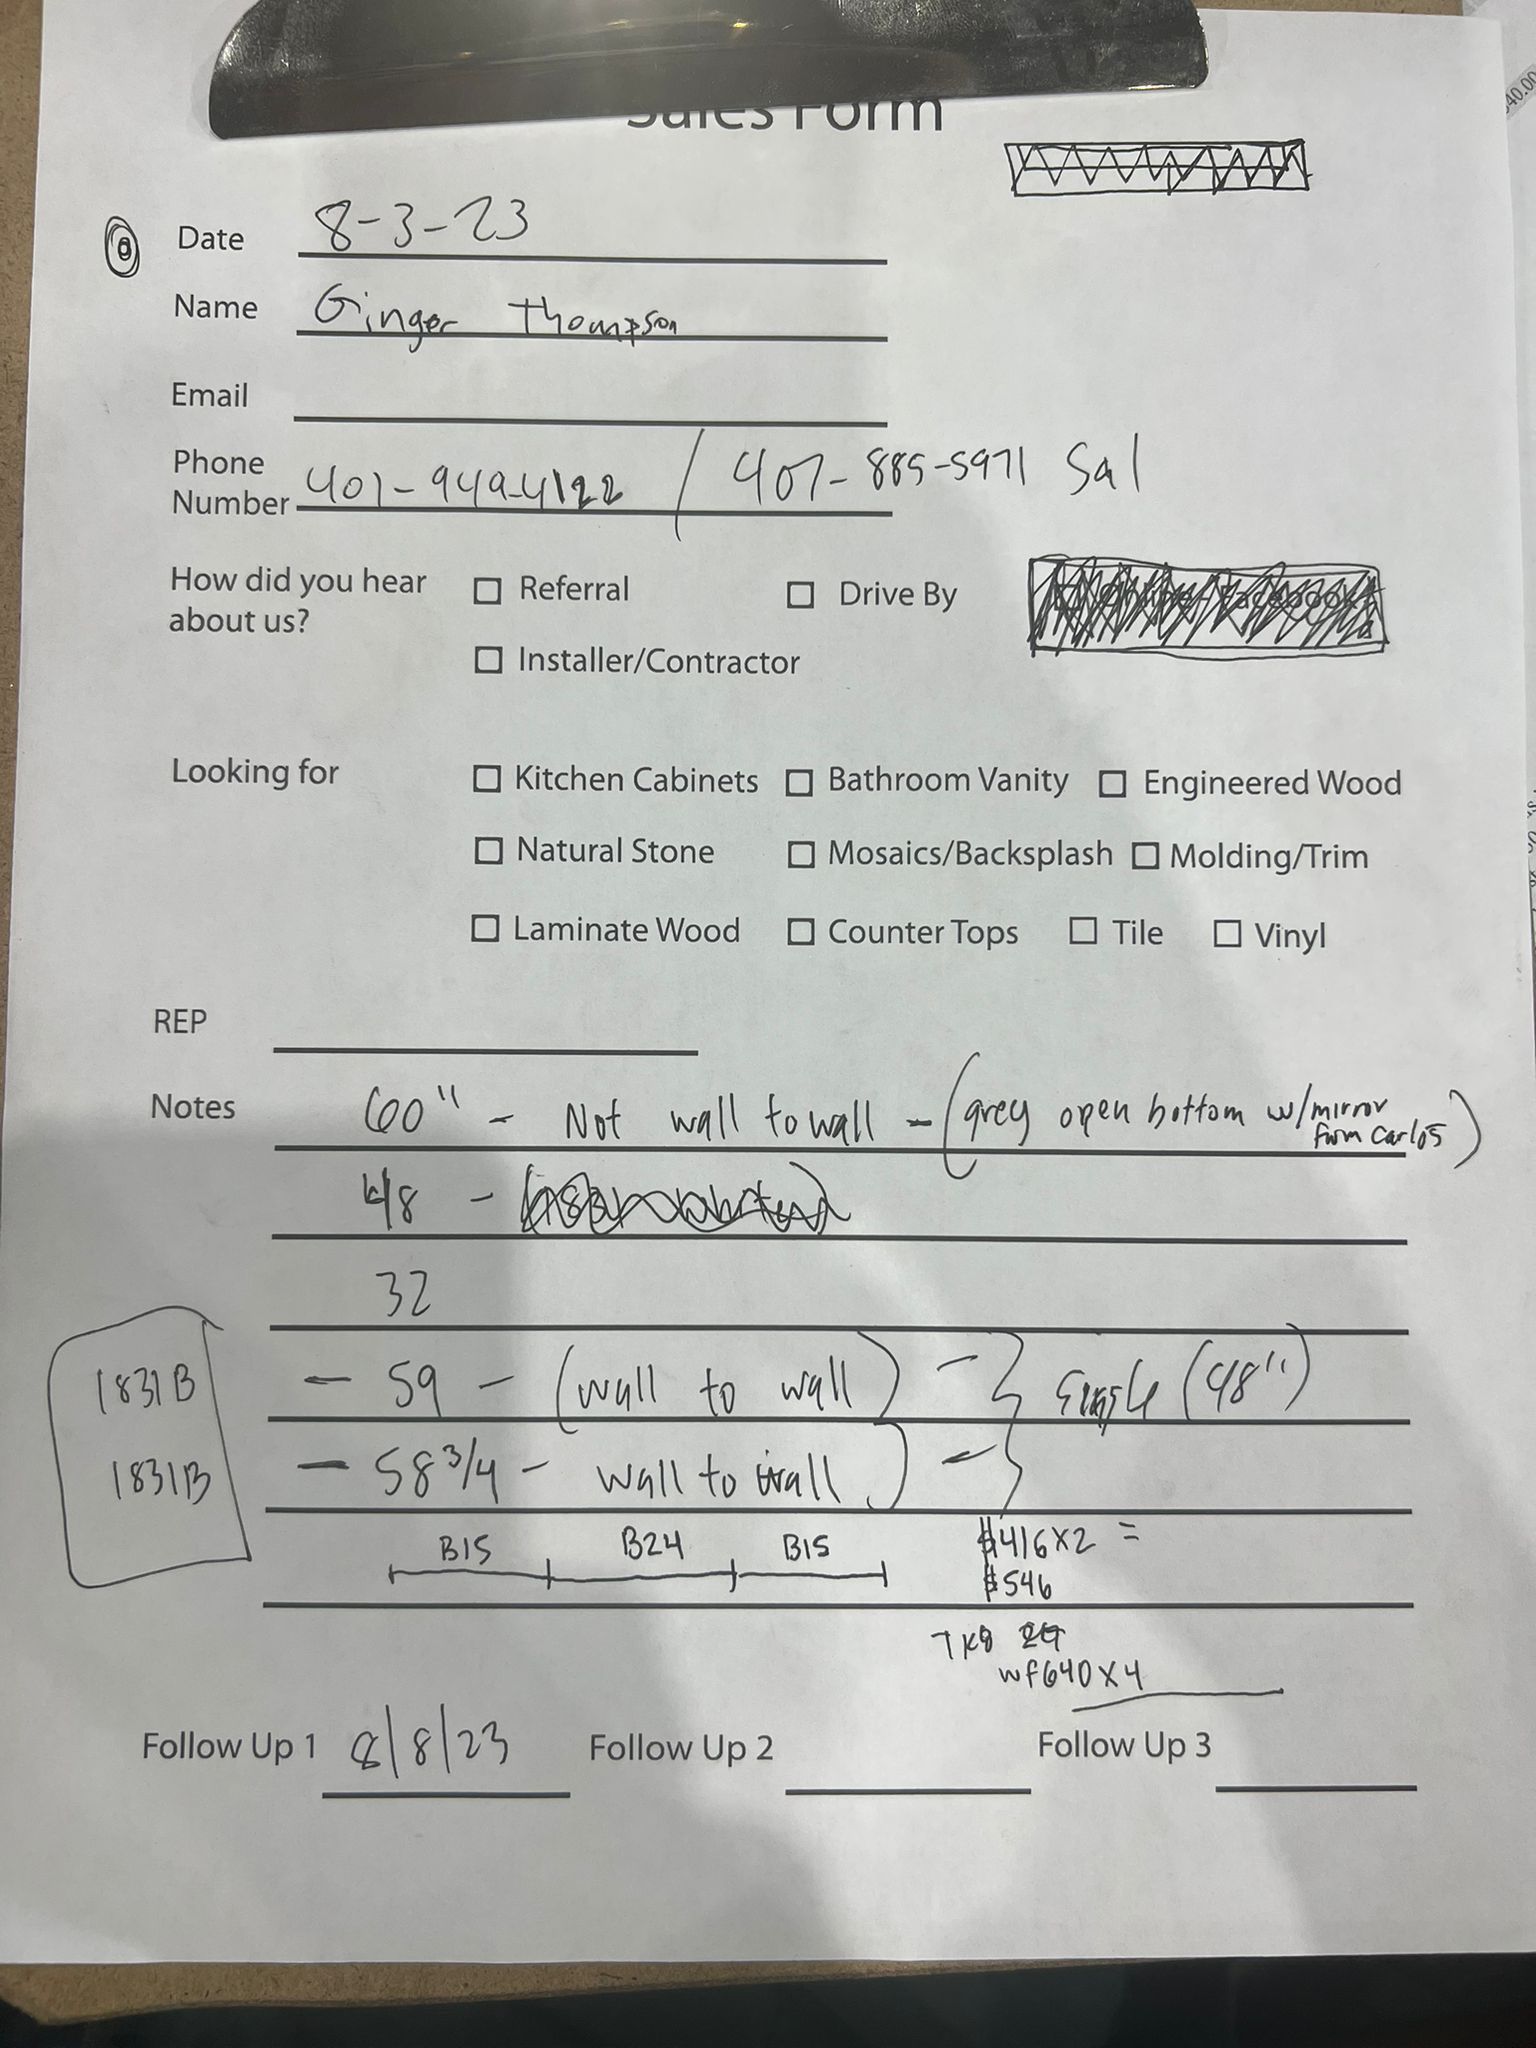 Sales Form
Date 8-3-23
Name Ginger Thompson
Email
Phone
Number 407-949-4122 / 407-885-5971 Sal
How did you hear
about us?
Referral Drive By
Installer/Contractor
Looking for
Kitchen Cabinets Bathroom Vanity Engineered Wood
Natural Stone Mosaics/Backsplash Molding/Trim
Laminate Wood Counter Tops Tile Vinyl
REP
Notes 60" - Not wall to wall - (grey open bottom w/mirror
from Carlos)
48 -
32
1831B - 59 - (wall to wall) - } Single (48")
1831B - 58 3/4 - wall to wall) -
B15 B24 B15 $416 X 2 =
$546
TK8
WF640 X 4
Follow Up 1 8/8/23 Follow Up 2 Follow Up 3